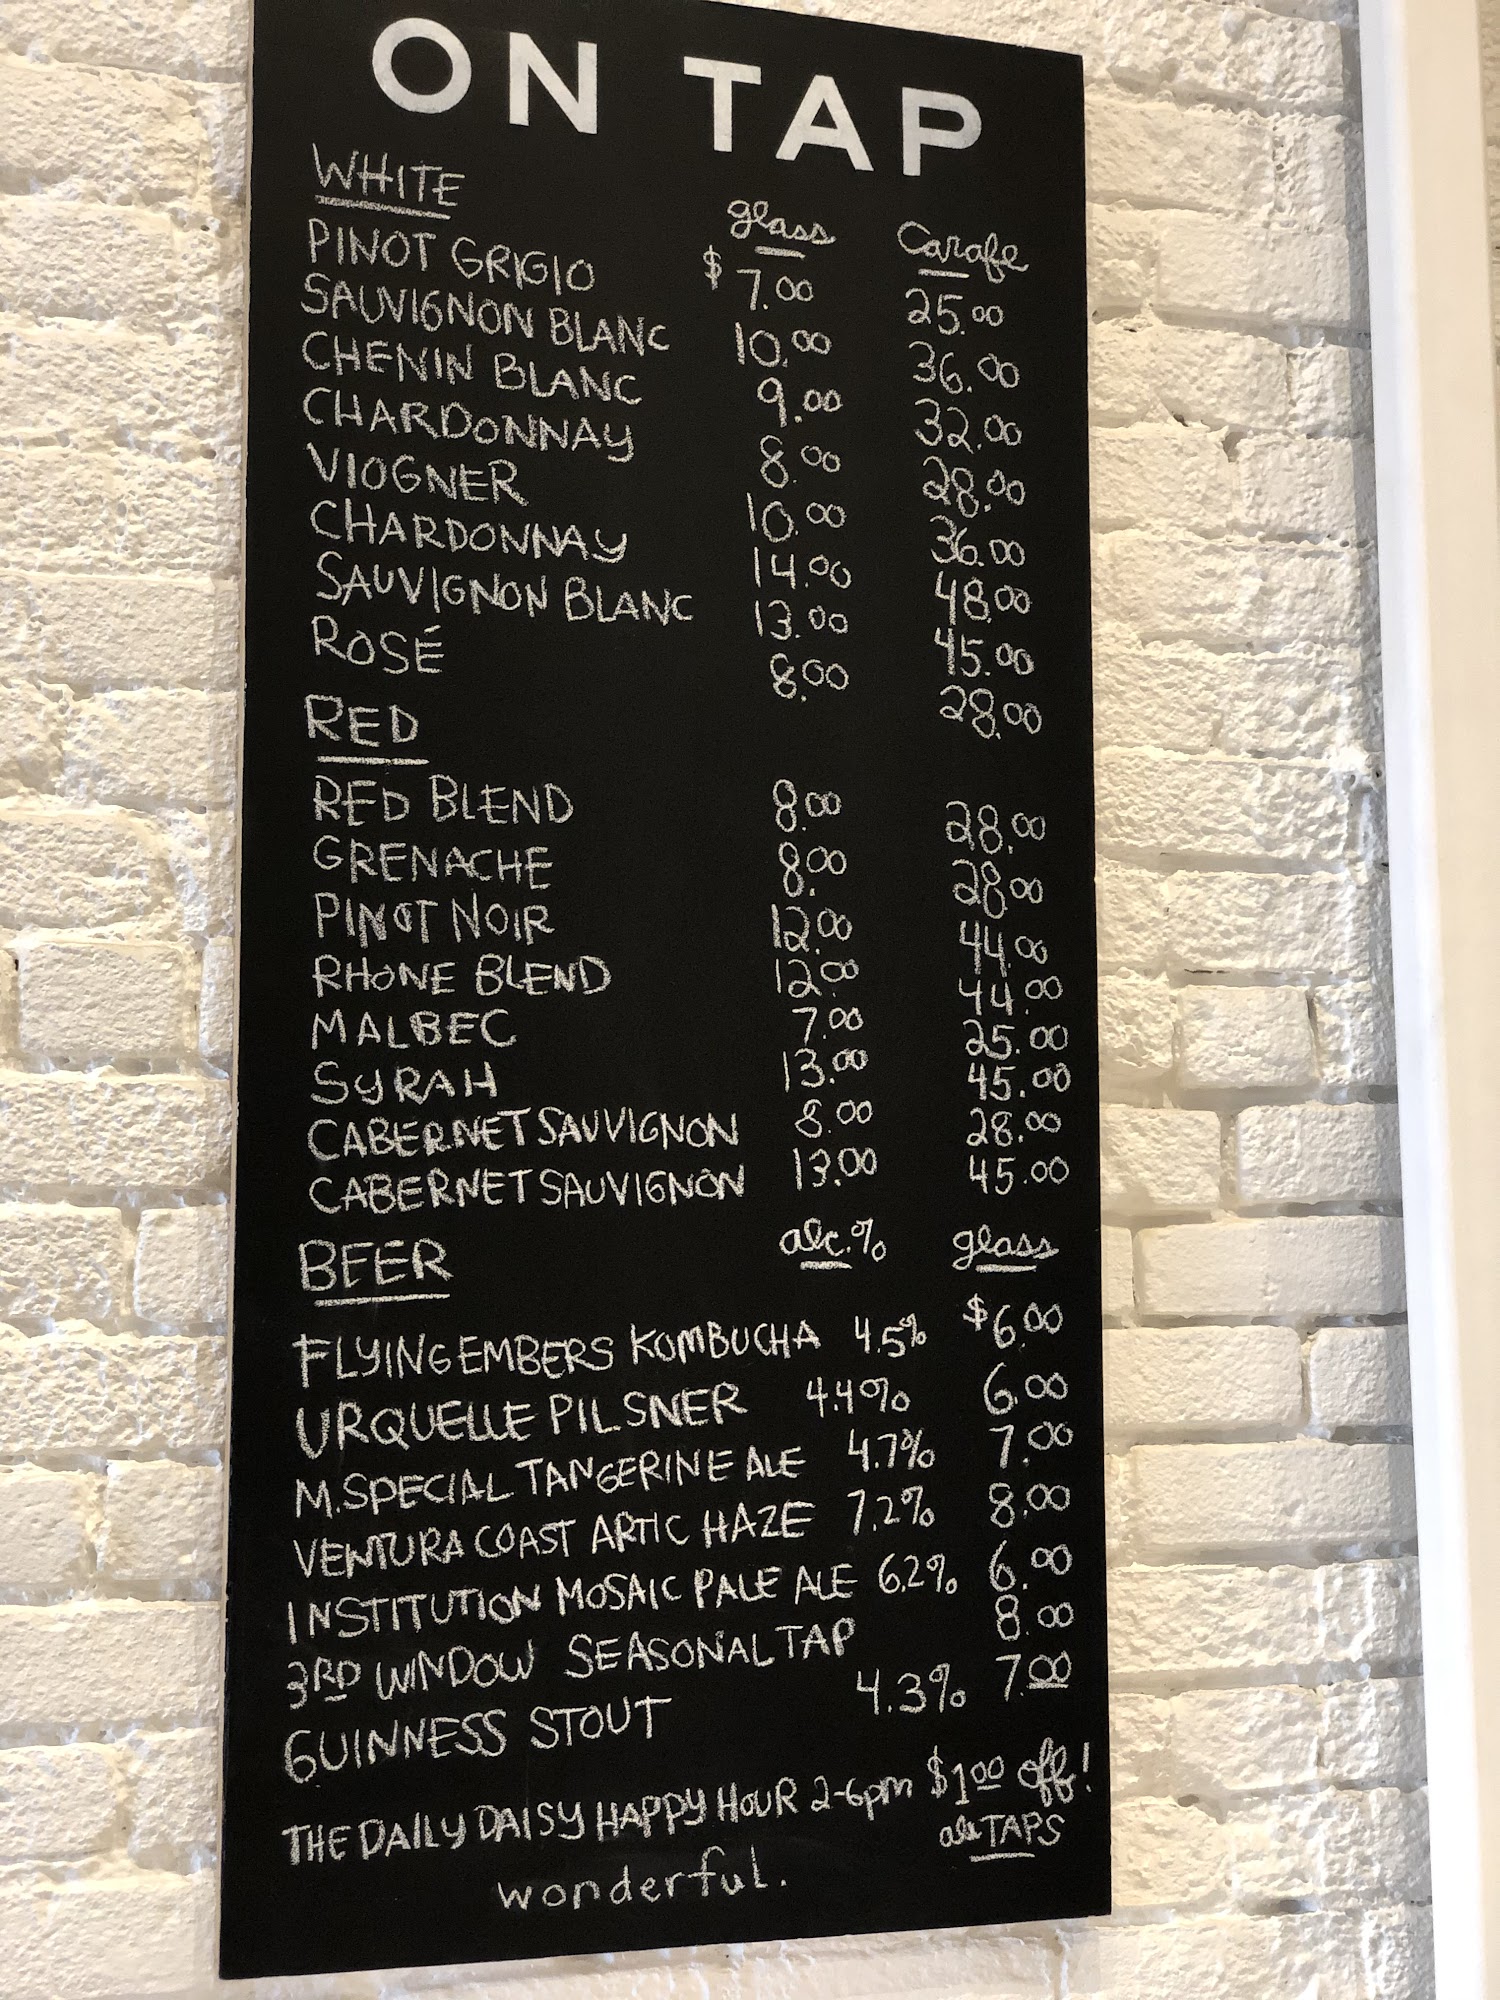 ON TAP
WHITE glass Carafe
PINOT GRIGIO $7.00 25.00
SAUVIGNON BLANC 10.00 36.00
CHENIN BLANC 9.00 32.00
CHARDONNAY 8.00 28.00
VIOGNER 10.00 36.00
CHARDONNAY 14.00 48.00
SAUVIGNON BLANC 13.00 45.00
ROSÉ 8.00 28.00
RED
RED BLEND 8.00 28.00
GRENACHE 8.00 28.00
PINOT NOIR 12.00 44.00
RHONE BLEND 12.00 44.00
MALBEC 7.00 25.00
SYRAH 13.00 45.00
CABERNET SAUVIGNON 8.00 28.00
CABERNET SAUVIGNON 13.00 45.00
BEER alc.% glass
FLYING EMBERS KOMBUCHA 4.5% $6.00
URQUELLE PILSNER 4.4% 6.00
M.SPECIAL TANGERINE ALE 4.7% 7.00
VENTURA COAST ARTIC HAZE 7.2% 8.00
INSTITUTION MOSAIC PALE ALE 6.2% 6.00
3RD WINDOW SEASONAL TAP 8.00
GUINNESS STOUT 4.3% 7.00
THE DAILY DAISY HAPPY HOUR 2-6pm $1.00 off!
TAPS
wonderful.